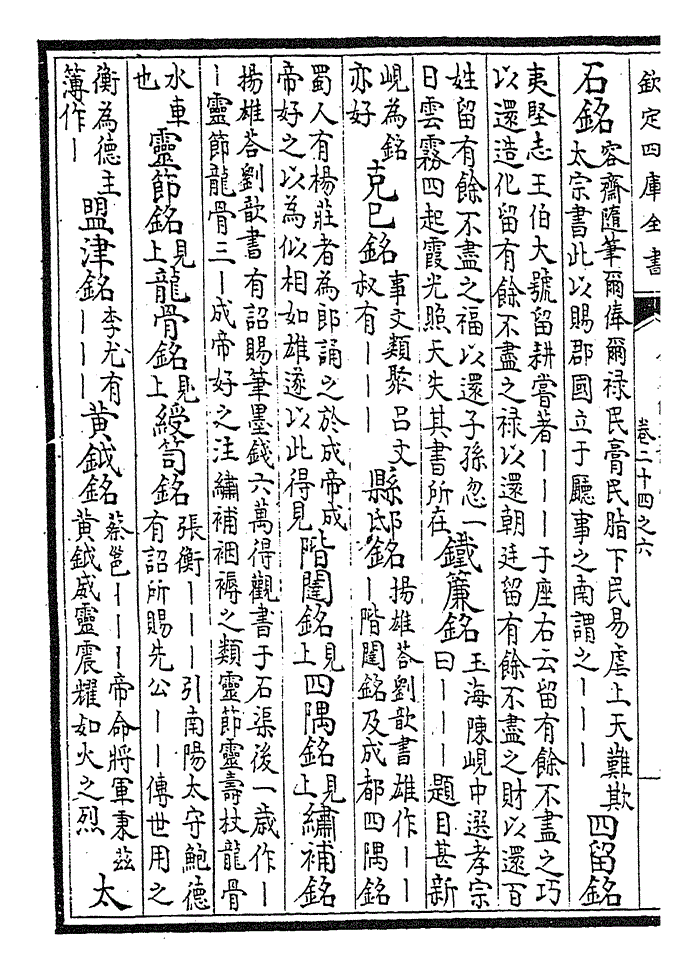 欽定四庫全書
卷二十四之六
石銘
容齋隨筆爾俸爾禄民膏民脂下民易虐上天難欺
太宗書此以賜郡國立于廳事之南謂之〡〡〡
四留銘
夷堅志王伯大號留耕嘗著〡〡〡于座右云留有餘不盡之巧
以還造化留有餘不盡之禄以還朝廷留有餘不盡之財以還百
姓留有餘不盡之福以還子孫忽一
日雲霧四起霞光照天失其書所在
鐵簾銘
玉海陳峴中選孝宗
曰〡〡〡題目甚新
峴為銘
亦好
克已銘
事文類聚呂文
叔有〡〡〡
縣邸銘
揚雄荅劉歆書雄作〡〡
〡階闥銘及成都四隅銘
蜀人有楊莊者為郎誦之於成帝成
帝好之以為似相如雄遂以此得見
階闥銘
見
上
四隅銘
見
上
繡補銘
揚雄荅劉歆書有詔賜筆墨錢六萬得觀書于石渠後一歲作〡
〡靈節龍骨三〡成帝好之注繡補裀褥之類靈節靈壽杖龍骨
水車
也
靈節銘
見
上
龍骨銘
見
上
綬笥銘
張衡〡〡〡引南陽太守鮑德
有詔所賜先公〡〡傳世用之
衡為德主
簿作〡
盟津銘
李尤有
〡〡〡
黃鉞銘
蔡邕〡〡〡帝命將軍秉茲
黃鉞威靈震耀如火之烈
太